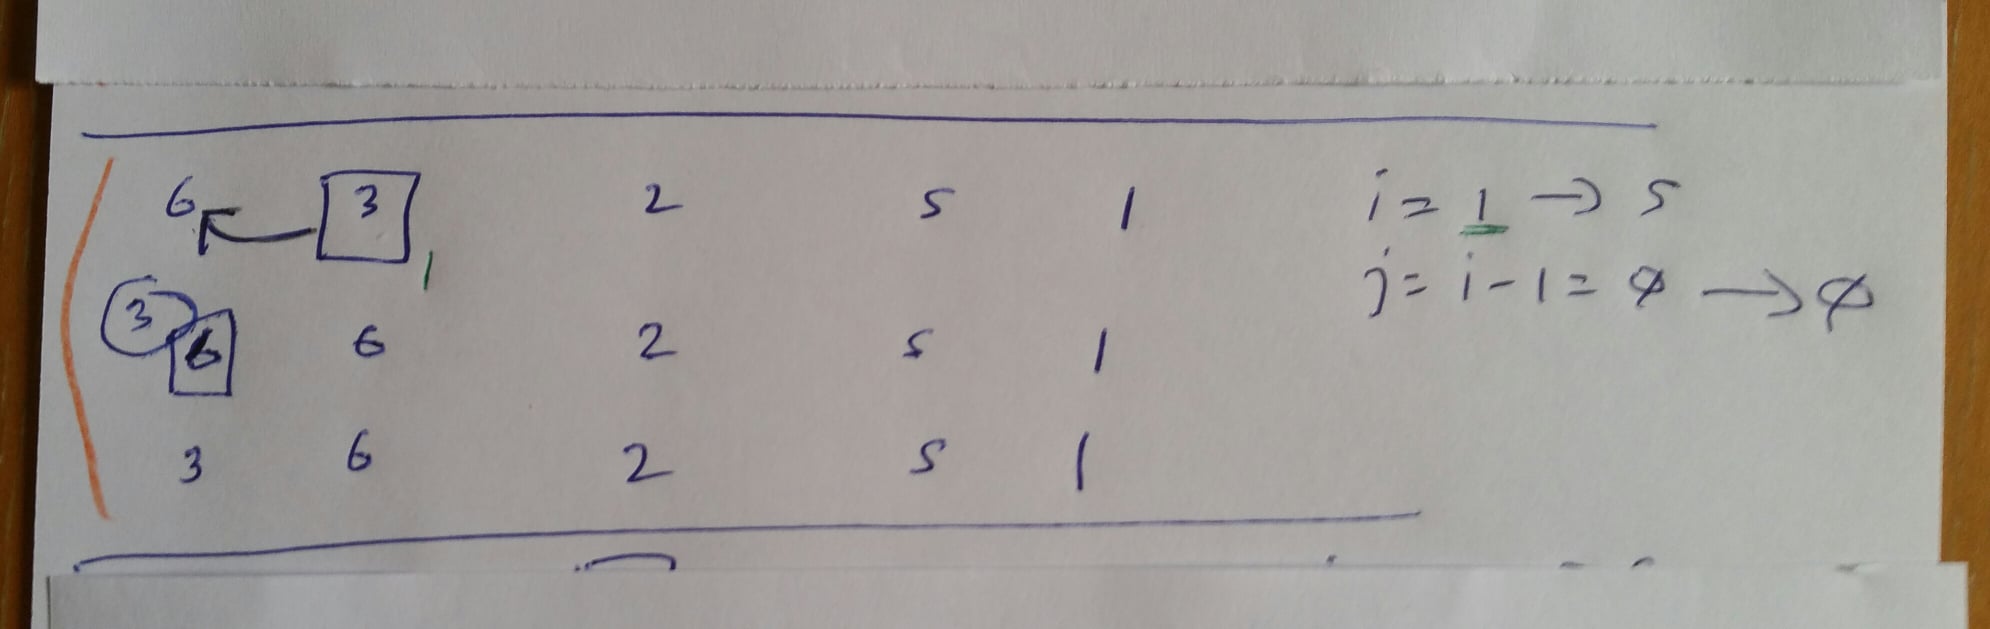 6 3 2 5 1 i = 1 → 5
1 j = i - 1 = 0 → 0
3 6 6 2 5 1
3 6 2 5 1